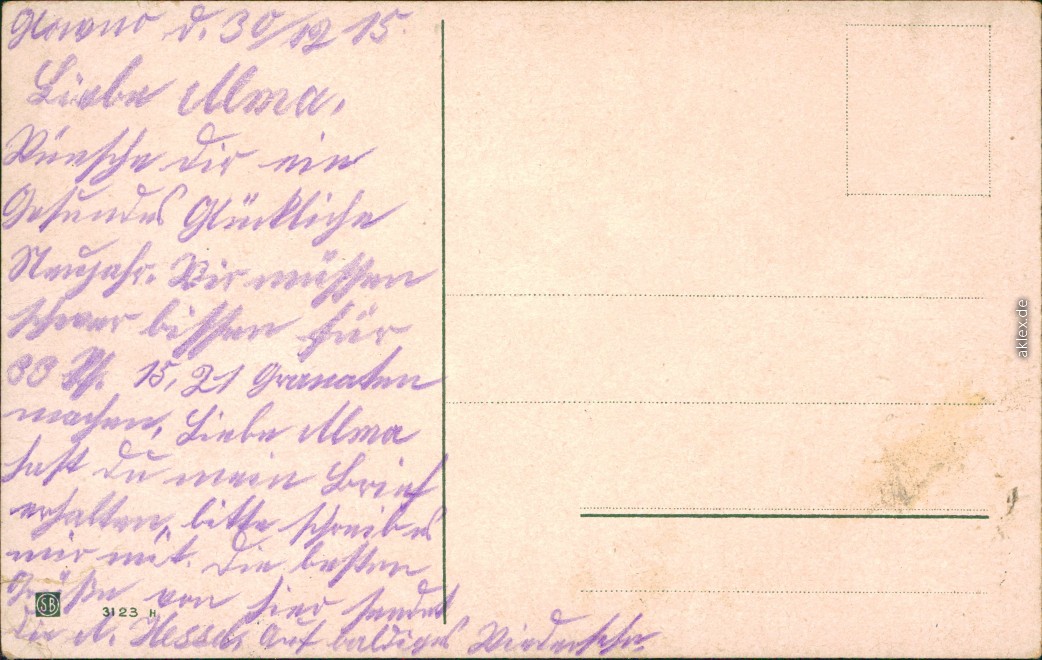 Glowno d. 30/12 15.
Liebe Alma,
Wünsche dir ein
Gesundes Glückliche
Neujahr. Wir müssen
schwer bissen für
Pf. 15, 21 Granaten
machen, Liebe Alma
hast Du mein Brief
erhalten, bitte schreib es
mir mit. Die besten
Grüße von hier sendet
Die A. Hessel, Auf baldiges Wiedersehn.
SB 3123 H
aklex.de